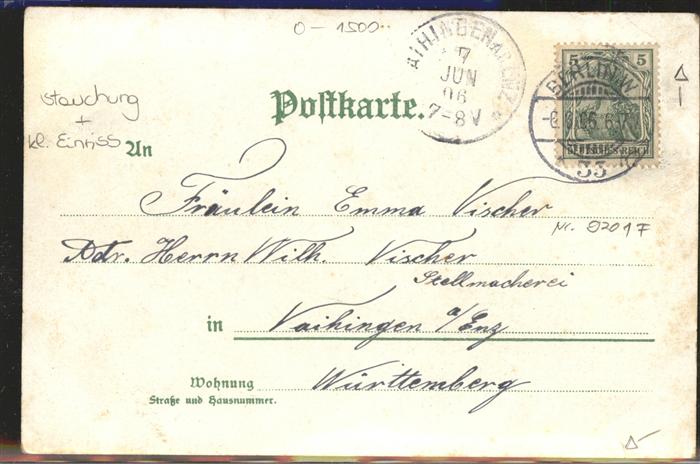 0-1500.-
VAIHINGEN A.D. ENZ
7
JUN
06
7-8V
5 5
BERLIN W
-6.6.06.6-7
35
DEUTSCHES REICH
Stauchung
+
kl. Einriss
Postkarte.
An
Fräulein Emma Vischer
Nr. 9201F
Adr. Herrn Wilh. Vischer
Stellmacherei
in Vaihingen a/Enz
Württemberg
Wohnung
Straße und Hausnummer.